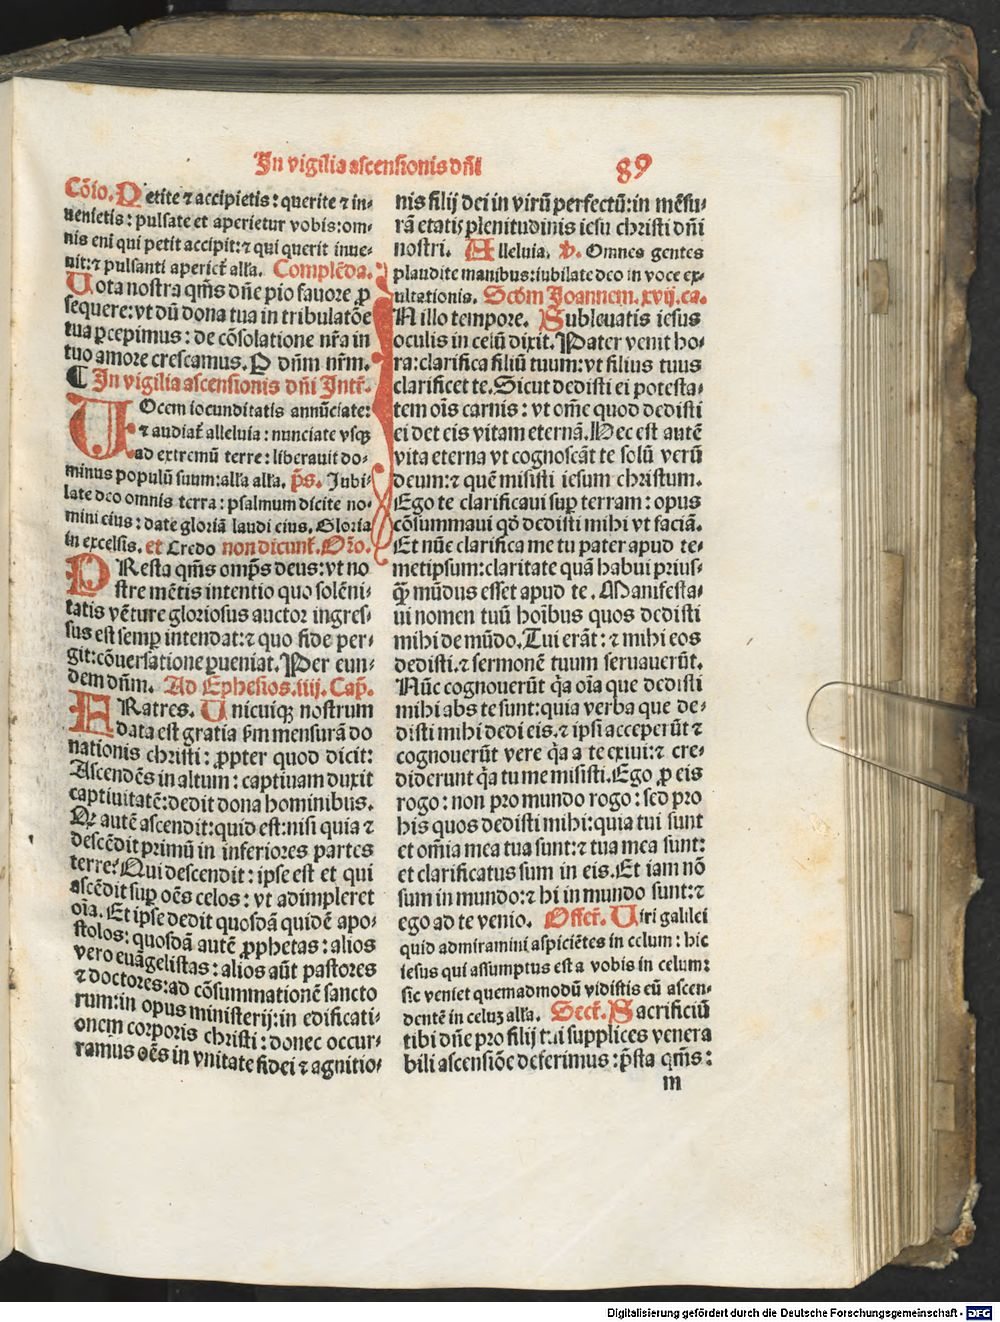 In vigilia ascensionis dñi 89
Cõio. Petite ⁊ accipietis: querite ⁊ in-
uenietis: pulsate et aperietur vobis: om-
nis eni qui petit accipit: ⁊ qui querit inue-
nit: ⁊ pulsanti aperiet̃ alľa. Complẽda.
Uota nostra qm̃s dñe pio fauore ꝓ
sequere: vt dũ dona tua in tribulatõe
tua ꝑcepimus: de cõsolatione nr̃a in
tuo amore crescamus. P dñm nr̃m.
¶ In vigilia ascensionis dñi Intr̃.
UOcem iocunditatis annũciate:
⁊ audiat̃ alleluia: nunciate vsqꝫ
ad extremũ terre: liberauit do-
minus populũ suum: alľa alľa. p̃s. Jubi-
late deo omnis terra: psalmum dicite no-
mini eius: date gloriã laudi eius. Gloria
in excelsis. et Credo non dicunt̃. Oro̅.
PResta qm̃s omp̃s deus: vt no
stre mẽtis intentio quo solẽni-
tatis vẽture gloriosus auctor ingres-
sus est semꝑ intendat: ⁊ quo fide per-
git: cõuersatione ꝑueniat. Per eun-
dem dñm. Ad Ephesios. iiij. Cap̃.
FRatres. Unicuiqꝫ nostrum
data est gratia ẜm mensurã do
nationis christi: ꝓpter quod dicit:
Ascendẽs in altum: captiuam duxit
captiuitatẽ: dedit dona hominibus.
Qꝛ autẽ ascendit: quid est: nisi quia ⁊
descẽdit primũ in inferiores partes
terre? Qui descendit: ipse est et qui
ascẽdit suꝑ oẽs celos: vt adimpleret
oĩa. Et ipse dedit quosdã quidẽ apo-
stolos: quosdã autẽ ꝓphetas: alios
vero euãgelistas: alios aũt pastores
⁊ doctores: ad cõsummationẽ sancto
rum: in opus ministerij: in edificati-
onem corporis christi: donec occur-
ramus oẽs in vnitate fidei ⁊ agnitio-
nis filij dei in virũ perfectũ: in mẽsu-
rã etatis plenitudinis iesu christi dñi
nostri. Alleluia. ꝟ. Omnes gentes
plaudite manibus: iubilate deo in voce ex-
ultationis. Scd̃m Joannem. xvij. ca.
IN illo tempore. Subleuatis iesus
oculis in celũ dixit. Pater venit ho-
ra: clarifica filiũ tuum: vt filius tuus
clarificet te. Sicut dedisti ei potesta-
tem oĩs carnis: vt om̃e quod dedisti
ei det eis vitam eternã. Hec est autẽ
vita eterna vt cognoscãt te solũ verũ
deum: ⁊ quẽ misisti iesum christum.
Ego te clarificaui suꝑ terram: opus
cõsummaui qd̃ dedisti mihi vt faciã.
Et nũc clarifica me tu pater apud te-
metipsum: claritate quã habui prius-
q̃ꝫ mũdus esset apud te. Manifesta-
ui nomen tuũ hoĩbus quos dedisti
mihi de mũdo. Tui erãt: ⁊ mihi eos
dedisti. ⁊ sermonẽ tuum seruauerũt.
Nũc cognouerũt q̃a oĩa que dedisti
mihi abs te sunt: quia verba que de-
disti mihi dedi eis. ⁊ ipsi acceperũt ⁊
cognouerũt vere q̃a a te exiui: ⁊ cre-
diderunt q̃a tu me misisti. Ego ꝓ eis
rogo: non pro mundo rogo: sed pro
his quos dedisti mihi: quia tui sunt
et om̃ia mea tua sunt: ⁊ tua mea sunt:
et clarificatus sum in eis. Et iam nõ
sum in mundo: ⁊ hi in mundo sunt: ⁊
ego ad te venio. Offer̃. Uiri galilei
quid admiramini aspiciẽtes in celum: hic
iesus qui assumptus est a vobis in celum:
sic veniet quemadmodũ vidistis eũ ascen-
dentẽ in celuꝫ alľa. Secr̃. Sacrificiũ
tibi dñe pro filij tui supplices venera
bili ascensiõe deferimus: p̃sta qm̃s:
m
Digitalisierung gefördert durch die Deutsche Forschungsgemeinschaft - DFG